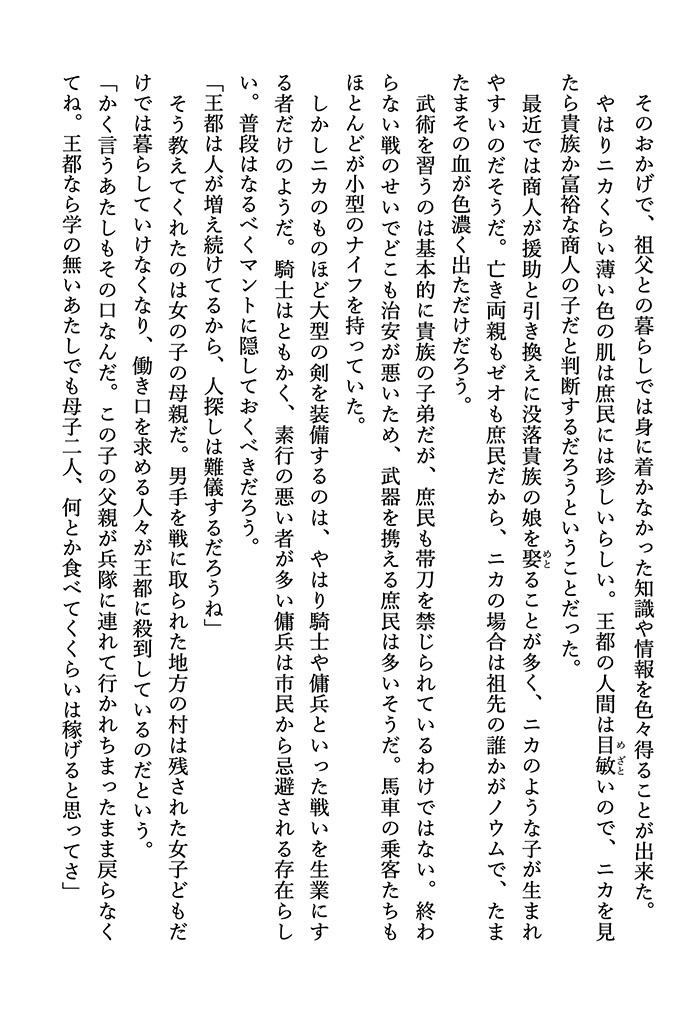 そのおかげで、祖父との暮らしでは身に着かなかった知識や情報を色々得ることが出来た。
　やはりニカくらい薄い色の肌は庶民には珍しいらしい。王都の人間は目敏いので、ニカを見
たら貴族か富裕な商人の子だと判断するだろうということだった。
　最近では商人が援助と引き換えに没落貴族の娘を娶ることが多く、ニカのような子が生まれ
やすいのだそうだ。亡き両親もゼオも庶民だから、ニカの場合は祖先の誰かがノウムで、たま
たまその血が色濃く出ただけだろう。
　武術を習うのは基本的に貴族の子弟だが、庶民も帯刀を禁じられているわけではない。終わ
らない戦のせいでどこも治安が悪いため、武器を携える庶民は多いそうだ。馬車の乗客たちも
ほとんどが小型のナイフを持っていた。
　しかしニカのものほど大型の剣を装備するのは、やはり騎士や傭兵といった戦いを生業にす
る者だけのようだ。騎士はともかく、素行の悪い者が多い傭兵は市民から忌避される存在らし
い。普段はなるべくマントに隠しておくべきだろう。
「王都は人が増え続けてるから、人探しは難儀するだろうね」
　そう教えてくれたのは女の子の母親だ。男手を戦に取られた地方の村は残された女子どもだ
けでは暮らしていけなくなり、働き口を求める人々が王都に殺到しているのだという。
「かく言うあたしもその口なんだ。この子の父親が兵隊に連れて行かれちまったまま戻らなく
てね。王都なら学の無いあたしでも母子二人、何とか食べてくくらいは稼げると思ってさ」